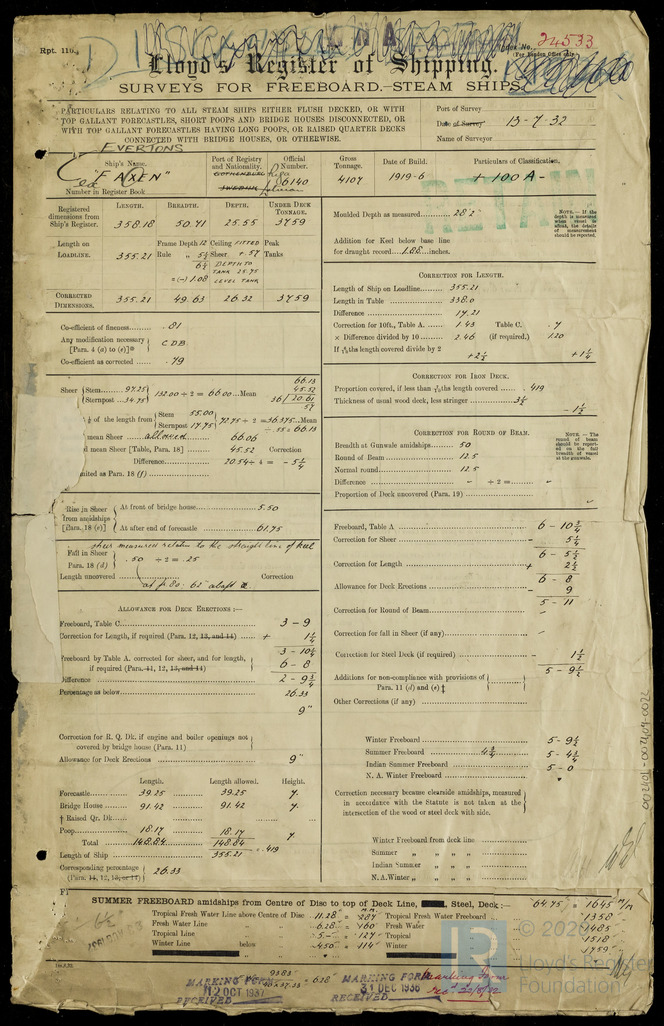 Rpt. 116.
Index No. 24533
(For London Office only)
Lloyd's Register of Shipping.
SURVEYS FOR FREEBOARD.—STEAM SHIPS.
PARTICULARS RELATING TO ALL STEAM SHIPS EITHER FLUSH DECKED, OR WITH
TOP GALLANT FORECASTLES, SHORT POOPS AND BRIDGE HOUSES DISCONNECTED, OR
WITH TOP GALLANT FORECASTLES HAVING LONG POOPS, OR RAISED QUARTER DECKS
CONNECTED WITH BRIDGE HOUSES, OR OTHERWISE.
Port of Survey
Date of Survey 13-7-32
Name of Surveyor
EVERTONS
Ship's Name.
"FAXEN"
Number in Register Book
Port of Registry and Nationality.
GOTHENBURG
SWEDISH
Official Number.
6140
Gross Tonnage.
4107
Date of Build.
1919-6
Particulars of Classification.
+ 100 A -
Registered dimensions from Ship's Register.
LENGTH. BREADTH. DEPTH. UNDER DECK TONNAGE.
358.18 50.71 25.55 3759
Length on LOADLINE. 355.21
Frame Depth 12 Ceiling FITTED Peak
Rule " 5½ Sheer + .57 Tanks
6½ DEPTH TO
TANK 25.75
= (-) 1.08 LEVEL TANK
CORRECTED DIMENSIONS. 355.21 49.63 26.32 3759
Moulded Depth as measured 28'2"
NOTE.—If the depth is measured when vessel is afloat, the details of measurement should be reported.
Addition for Keel below base line
for draught record 1.02 inches.
CORRECTION FOR LENGTH.
Length of Ship on Loadline 355.21
Length in Table 338.0
Difference 17.21
Correction for 10ft., Table A. 1.43 Table C. .7
× Difference divided by 10 2.46 (if required.) 1.20
If 6/10ths length covered divide by 2
+2½ +1¼
CORRECTION FOR IRON DECK.
Proportion covered, if less than 7/10ths length covered .419
Thickness of usual wood deck, less stringer 3½
- 1½
CORRECTION FOR ROUND OF BEAM.
Breadth at Gunwale amidships 50
Round of Beam 12.5
Normal round 12.5
Difference - ÷ 2 = -
Proportion of Deck uncovered (Para. 19)
NOTE.—The round of beam should be reported on the full breadth of vessel at the gunwale.
Co-efficient of fineness .81
Any modification necessary [Para. 4 (a) to (e)] CDB
Co-efficient as corrected .79
Sheer Stem 97.25
Sternpost 34.75
132.00 ÷ 2 = 66.00 Mean
66.13
45.52
36)20.61
.57
of the length from Stem 55.00
Sternpost 17.75
72.75 ÷ 2 = 36.375 Mean
÷ .55 = 66.13
mean Sheer allowed 66.06
mean Sheer [Table, Para. 18] 45.52 Correction
Difference 20.54 ÷ 4 = - 5¼
limited as Para. 18 (f)
Rise in Sheer from amidships [Para. 18 (e)]
At front of bridge house 5.50
At after end of forecastle 61.75
sheer measures relates to the straight line of keel
Fall in Sheer Para. 18 (d) .50 ÷ 2 = .25
Length uncovered Correction
ALLOWANCE FOR DECK ERECTIONS:—
Freeboard, Table C. 3 - 9
Correction for Length, if required (Para. 12, 13, and 14) + 1¼
3 - 10¼
Freeboard by Table A. corrected for sheer, and for length, if required (Para. 11, 12, 13, and 14) 6 - 8
Difference 2 - 9¾
Percentage as below 26.33
9"
Correction for R. Q. Dk. if engine and boiler openings not covered by bridge house (Para. 11)
Allowance for Deck Erections 9"
Length. Length allowed. Height.
Forecastle 39.25 39.25 7.
Bridge House 91.42 91.42 7.
† Raised Qr. Dk.
Poop 18.17 18.17 7
Total 148.84 148.84
Length of Ship 355.21 = .419
Corresponding percentage (Para. 11, 12, 13, or 14) 26.33
Freeboard, Table A 6 - 10¾
Correction for Sheer - 5¼
6 - 5½
Correction for Length + 2½
6 - 8
Allowance for Deck Erections - 9
5 - 11
Correction for Round of Beam
Correction for fall in Sheer (if any)
Correction for Steel Deck (if required) - 1½
5 - 9½
Additions for non-compliance with provisions of Para. 11 (d) and (e)‡
Other Corrections (if any)
Winter Freeboard 5 - 9½
Summer Freeboard 4¾ 5 - 4¾
Indian Summer Freeboard 5 - 0
N. A. Winter Freeboard
Correction necessary because clearside amidships, measured in accordance with the Statute is not taken at the intersection of the wood or steel deck with side.
Winter Freeboard from deck line
Summer " " " "
Indian Summer " " " "
N.A. Winter " " " "
002401-002409-0022
SUMMER FREEBOARD amidships from Centre of Disc to top of Deck Line, Steel, Deck:— 64.75 = 1645 m/m
Tropical Fresh Water Line above Centre of Disc 11.28" = 287 Tropical Fresh Water Freeboard 1358
Fresh Water Line 6.28 = 160 Fresh Water 1485
Tropical Line 5.- = 127 Tropical 1518
Winter Line below 4.50 = 114 1759
MARKING FORM
12 OCT 1937
RECEIVED
MARKING FORM
31 DEC 1936
RECEIVED
Marking Form
© 2020
Lloyd's Register
Foundation
LR